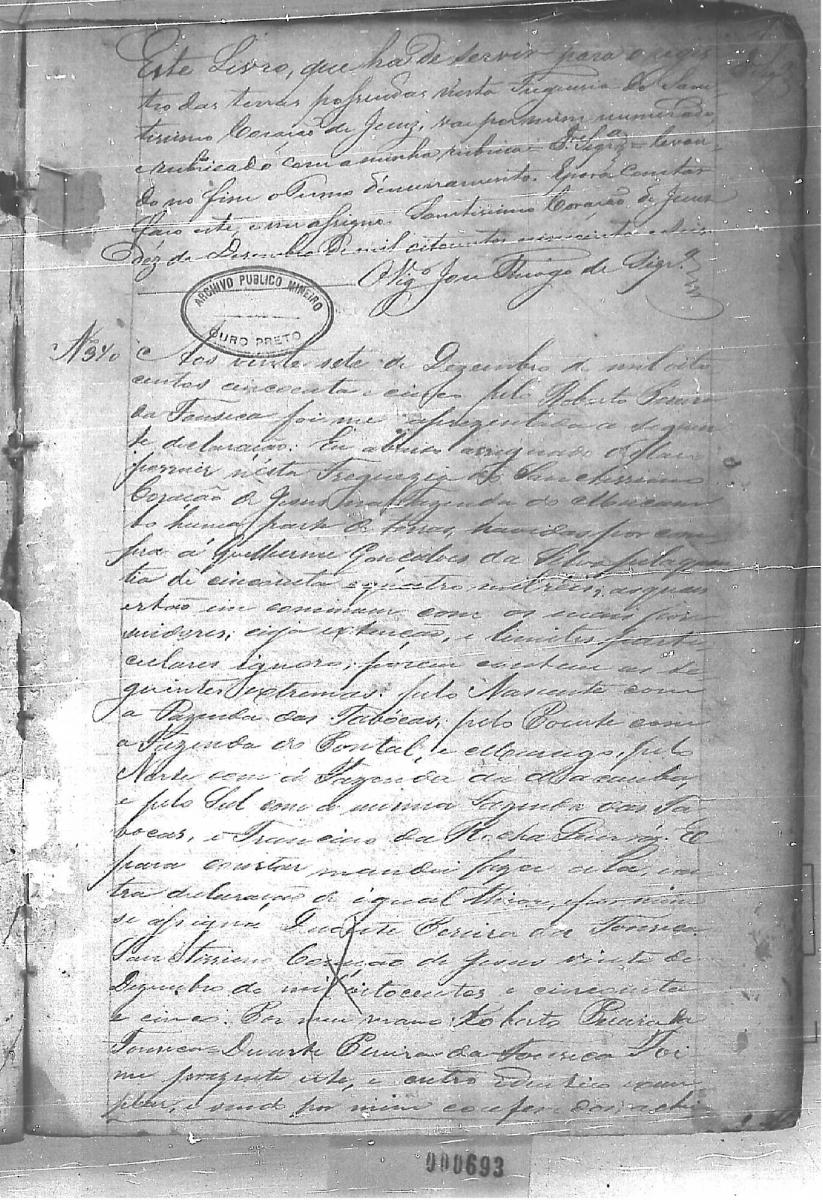 Este Livro, que ha de servir para o regis
tro das terras possuidas nesta Freguesia do San
tissimo Coração de Jesuz, vai por mim numerado
e rubricado com a minha rubrica = Siqrª = levan
do no fim o Termo d'encerramento. E para constar
faço este, e me assigno. Santissimo Coração de Jesus
déz de Desembro de mil oitocentos e cincoenta e
O Vigº José de Siqrª
ARCHIVO PUBLICO MINEIRO
OURO PRETO
Nº 34
Aos vinte sete de Dezembro de mil oito
centos cincoenta e cinco pelo Roberto Pereira
da Fonseca foi me aprezentada a seguin
te declaração. Eu abaixo assignado
possuir nésta Freguezia do Sanctissimo
Coração de Jesus na Fazenda do Mocam
bo huma parte de terras, havidas por com
pra á Guilherme Gonçalves da Silva pela quan
tia de cincoenta e quatro mil réis, as quaes
estão em commum com os mais pos
suidores, cuja extenção, e limites parti
culares ignoro; porem contem as se
guintes extremas: pelo Nascente com
a Fazenda das Tabócas, pelo Poente com
a Fazenda do Pontal, e pelo
Norte com a Fazenda da
e pelo Sul com a minha Fazenda das Ta
bocas, e Francisco da Rocha E
para constar mandei fazer esta, e ou
tra declaração de igual theor, e por mim
se assigna Duarte Pereira da Fonseca
Sanctissimo Coração de Jesus vinte de
Dezembro de mil oitocentos e cincoenta
e cinco. Por meu mano Roberto Pereira da
Fonseca = Duarte Pereira da Fonseca Foi
me prezente este, e outro identico exem
plar, e sendo por mim conferidos achei
000693